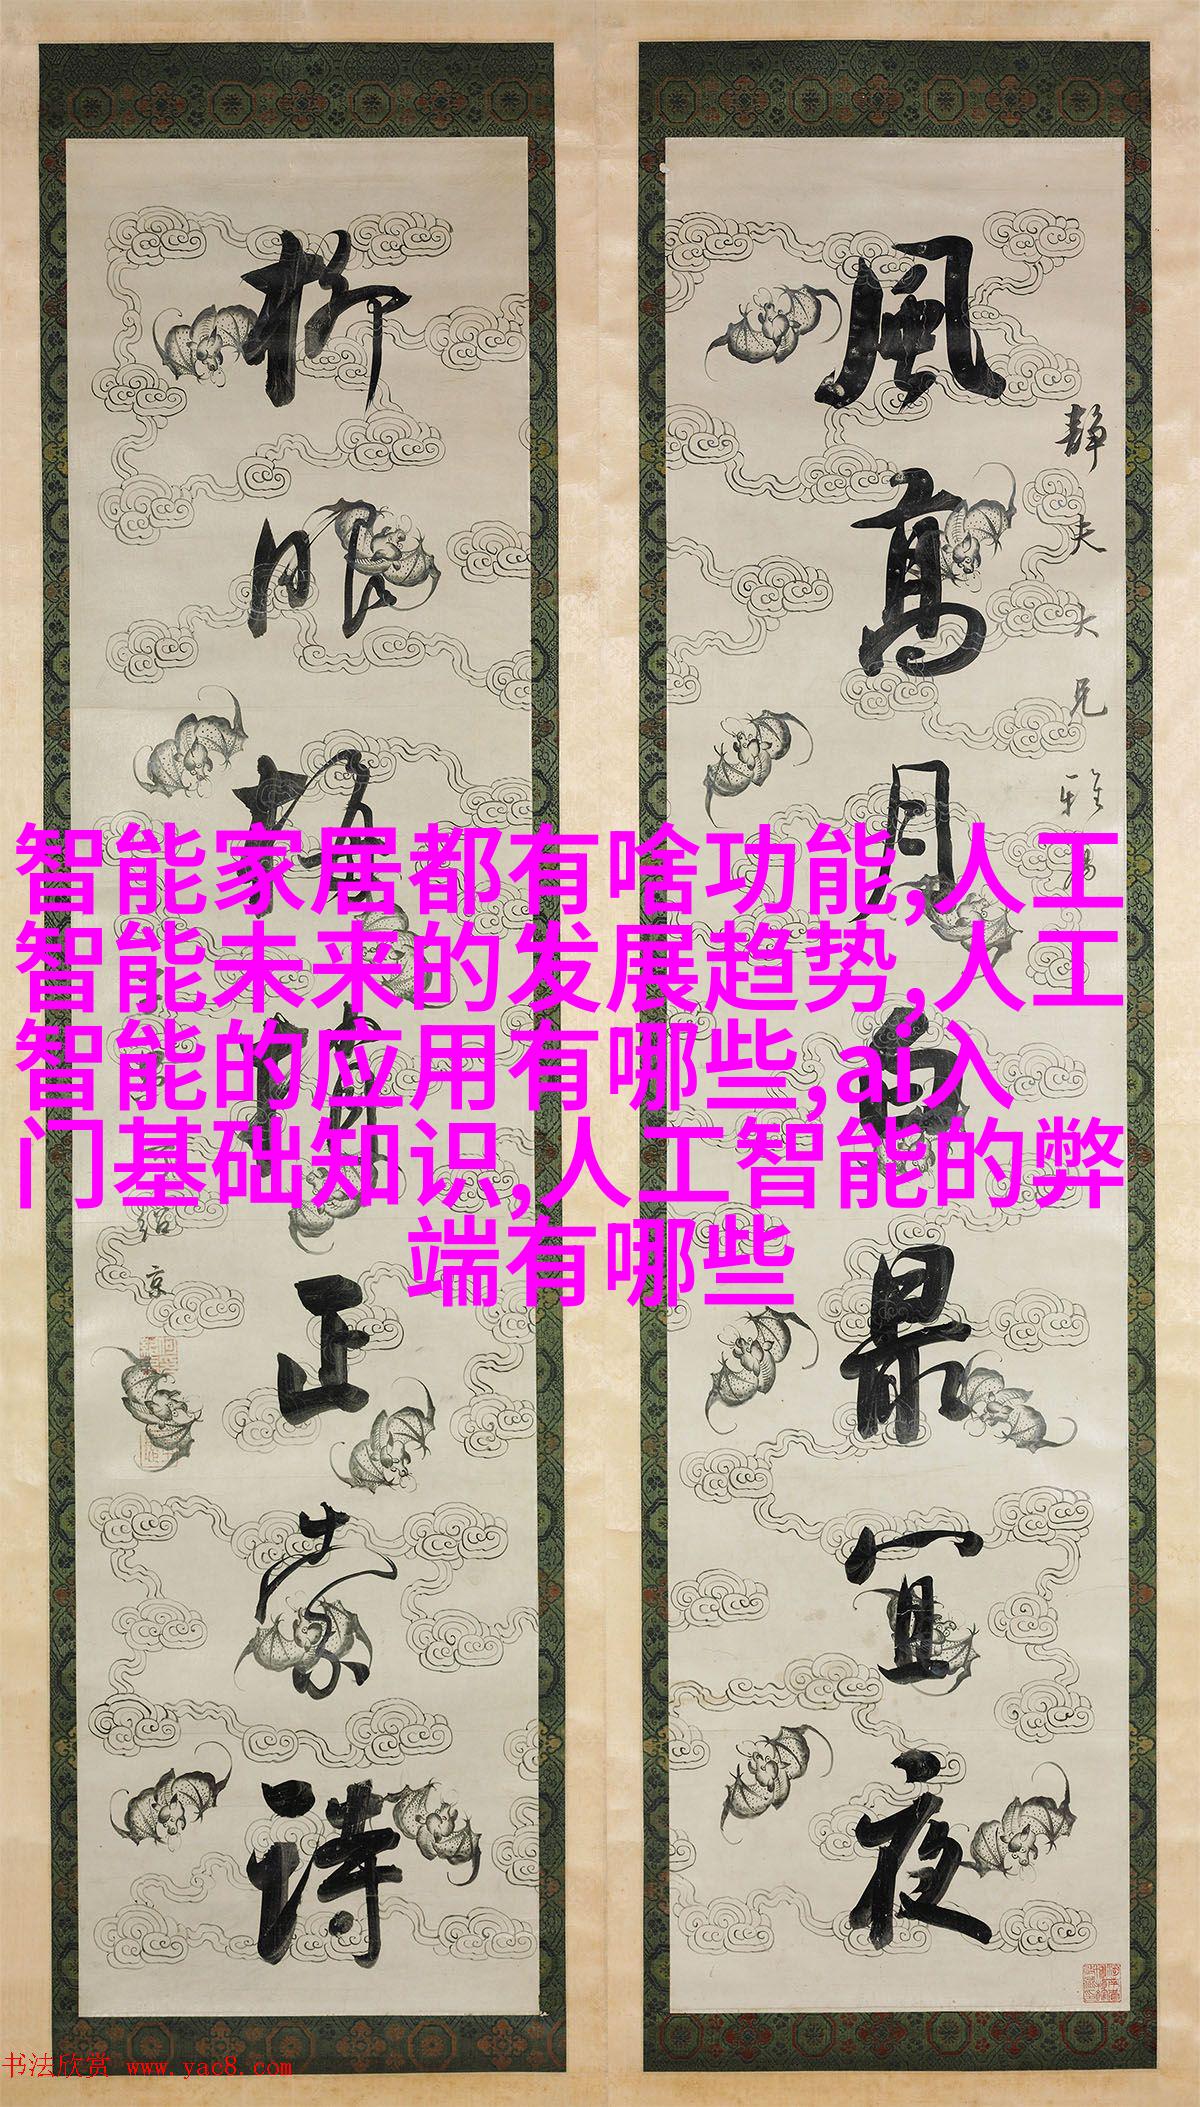 風高月白最宜夜
静夫大兄雅
柳眼梅正索詩
紹京
智能家居都有啥功能,人工
智能未来的发展趋势,人工
智能的应用有哪些,ai入
门基础知识,人工智能的弊
端有哪些
书法欣赏 www.yac8.com